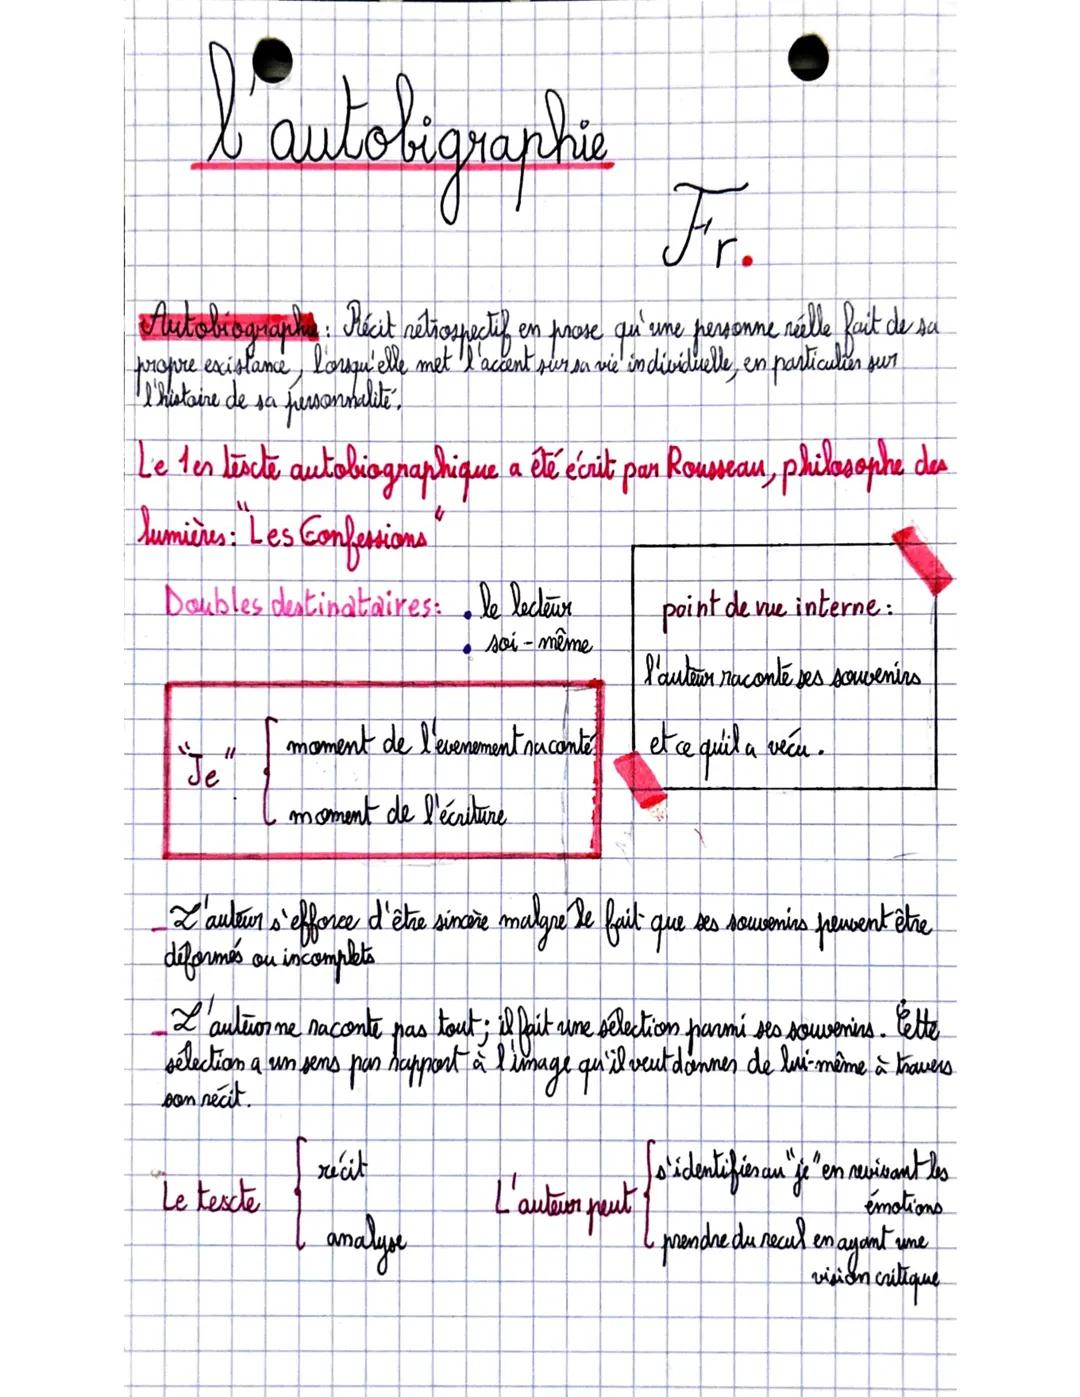 l'autobigraphie
Fr.
Autobiographie : Récit rétrospectif en prose qu'une personne réelle fait de sa
propre existance, lorsqu'elle met l'accent sur sa vie individuelle, en particulier sur
l'histoire de sa personnalité.
Le 1er texte autobiographique a été écrit par Rousseau, philosophe des
lumières : "Les Confessions"
Doubles destinataires: • le lecteur
• soi-même
point de vue interne :
l'auteur raconte ses souvenirs
et ce qu'il a vécu.
"Je"
moment de l'evenement raconté
moment de l'écriture
_ L'auteur s'efforce d'être sincère malgré le fait que ses souvenirs peuvent être
déformés ou incomplets
_ L'auteur ne raconte pas tout ; il fait une sélection parmi ses souvenirs. Cette
sélection a un sens par rapport à l'image qu'il veut donner de lui-même à travers
son récit.
Le texte
récit
analyse
L'auteur peut
s'identifier au "je" en revivant les
émotions
prendre du recul en ayant une
vision critique